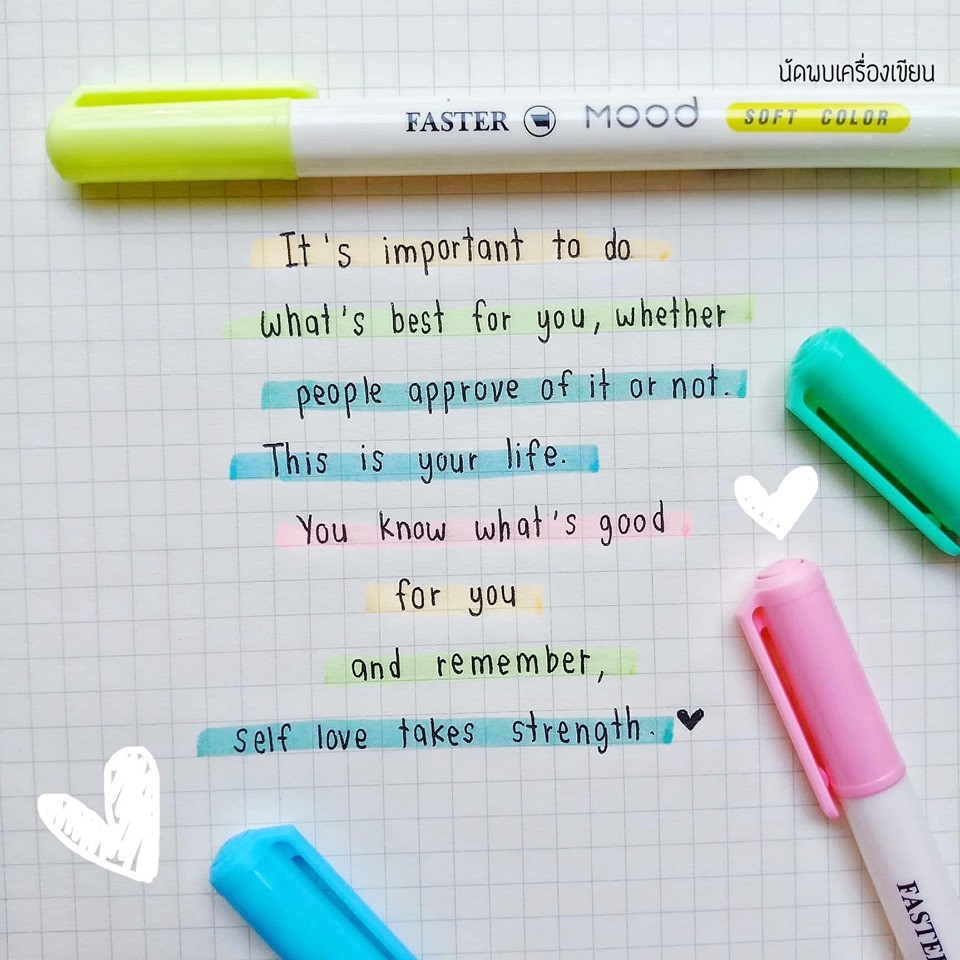 นัดพบเครื่องเขียน
FASTER MOOD SOFT COLOR
It's important to do
what's best for you, whether
people approve of it or not.
This is your life.
You know what's good
for you
and remember,
self love takes strength.